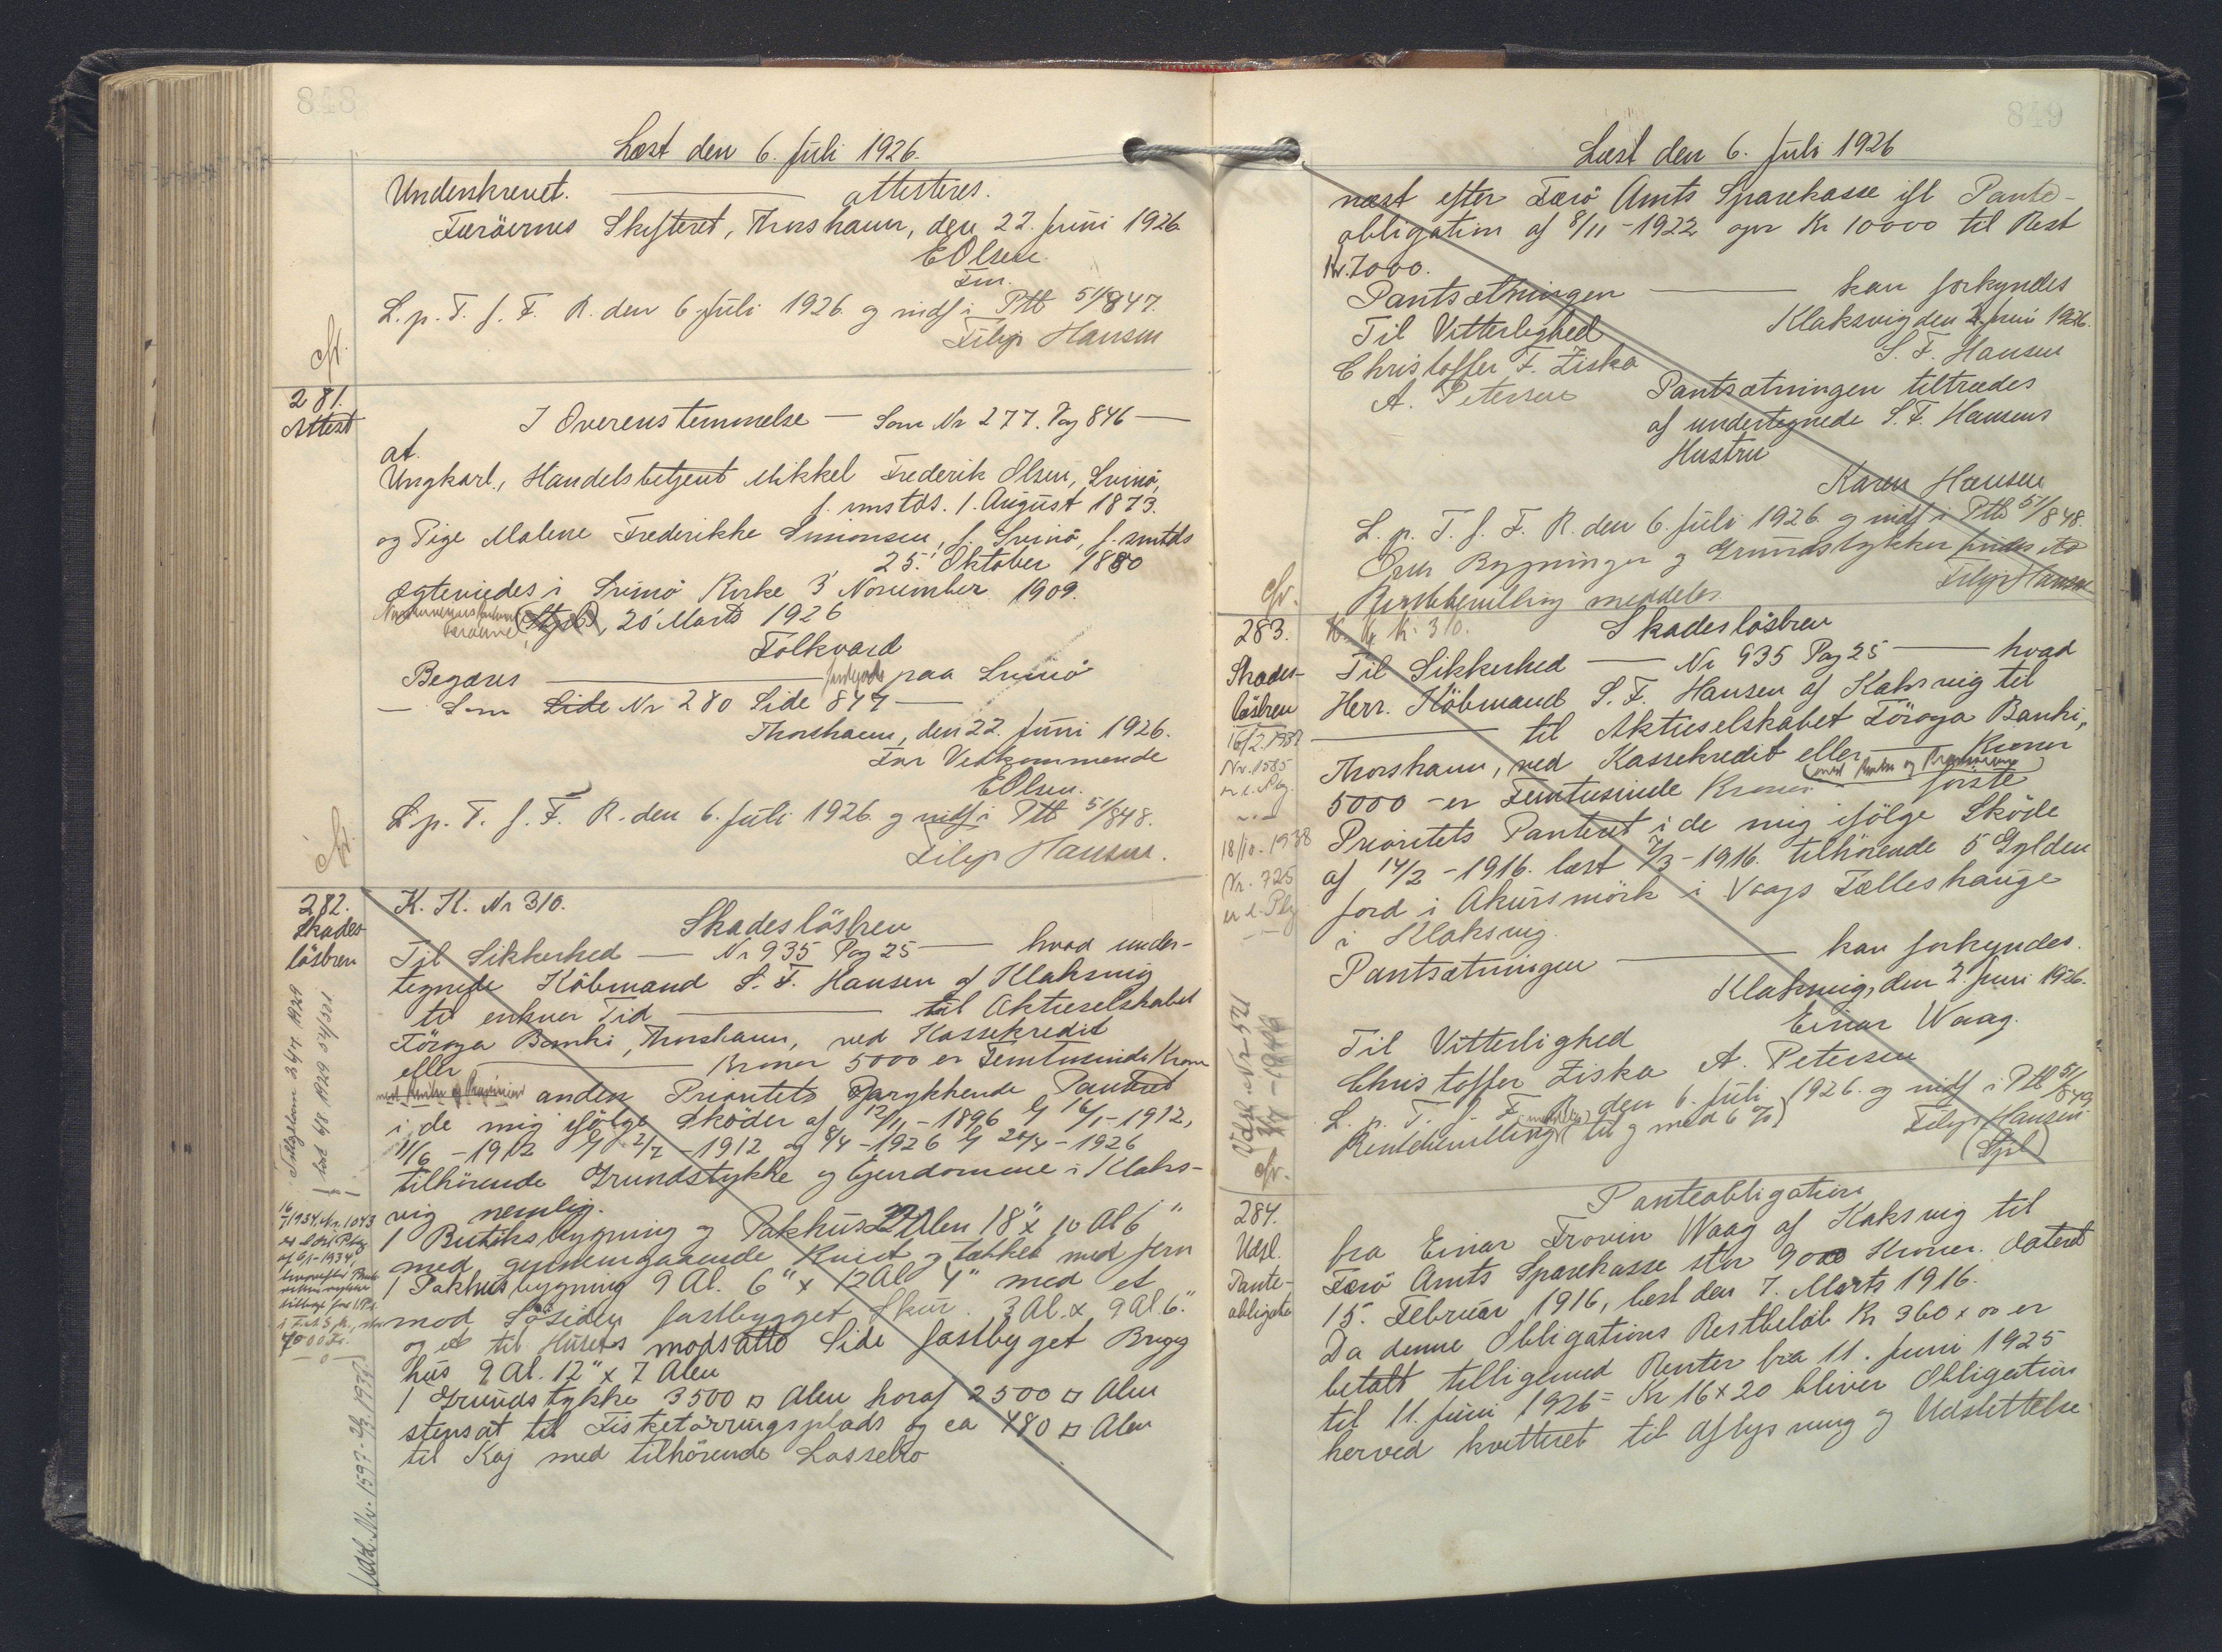 848
Læst den 6. Juli 1926.
Underskrevet. ——— attesteres.
Færöernes Skifteret, Thorshavn, den 22. Juni 1926
EOlsen.
Fm.
L. p. T. f. F. R. den 6 Juli 1926 og indf i Ptb 51/847.
Filip Hansen
Cfr.
281.
Attest
I Overensstemmelse — Som Nr 277. Pag 846 —
at
Ungkarl, Handelsbetjent Mikkel Frederik Olsen, Svinö,
f. smstds. 1. August 1873.
og Pige Malene Frederikke Simonsen, f. Svinö, f. smtds
25. Oktober 1880
ægteviedes i Svinö Kirke 3 November 1909.
(Stpl), 20 Marts 1926
Folkvard
Begæres ——— Jordgods paa Svinö
— Som Side Nr 280 Side 847 —
Thorshavn, den 22. Juni 1926.
For Vedkommende
EOlsen.
L. p. T. f. F. R. den 6. Juli 1926 og indf i Ptb 51/848.
Filip Hansen.
Cfr.
282.
Skades-
lösbrev
K. K. Nr 310.
Skadeslösbrev
Til Sikkerhed — Nr 935 Pag 25 — hvad under-
tegnede Köbmand S. F. Hansen af Klaksvig
til enhver Tid ——— til Aktieselskabet
Föroya Banki, Thorshavn, ved Kassekredit
eller ——— Kroner 5000 er Femtusinde Kroner
med Renter og Provision anden Prioritets Oprykkende Panteret
i de mig ifölge Sköder af 12/11-1896 Lg 16/1-1912,
11/6-1912 Lg 2/7-1912 og 8/4-1926 Lg 20/4-1926
tilhörende Grundstykke og Ejendomme i Klaks-
vig nemlig.
1 Butiksbygning og Pakhus 22 Alen 18" x 10 Al 6"
med gennemgaaende Kvist og tækket med Jern
1 Pakhusbygning 9 Al. 6" x 12 Al 4" med et
mod Sösiden fastbygget Skur. 3 Al. x 9 Al. 6."
og et til Husets modsatte Side fastbygget Bryg
hus 9 Al. 12" x 7 Alen
1 Grundstykke 3500 □ Alen horaf 2500 □ Alen
stensat til Fisketörringsplads og ca 480 □ Alen
til Kaj med tilhörende Lossebro
læst 6/8 1929 54/321
Udsl. Nr. 1597-
849
Læst den 6. Juli 1926
næst efter Færö Amts Sparekasse ifl Pante-
obligation af 8/11-1922 opr Kr 10000 til Rest
Kr. 7000.
Pantsætningen ——— kan forkyndes
Til Vitterlighed
Klaksvig den 2 Juni 1926.
Christoffer F. Ziska
S. F. Hansen
A. Petersen
Pantsætningen tiltrædes
af undertegnede S. F. Hansens
Hustru
Karen Hansen
L. p. T. f. F. R. den 6. Juli 1926 og indf i Ptb 51/848.
Opm Bygninger og Grundstykker findes etc
Rentebevilling meddeles
Filip Hansen
Cfr.
283.
Skades-
lösbrev
K. K. Nr. 310.
Skadeslösbrev
Til Sikkerhed — Nr 935 Pag 25 — hvad
Herr. Köbmand S. F. Hansen af Kaksvig til
——— til Aktieselskabet Föroya Banki,
Thorshavn, ved Kassekredit eller — Kroner
5000 - er Femtusinde Kroner (med Renter og Provision) förste
Prioritets Panteret i de mig ifölge Sköde
af 14/2-1916. læst 7/3-1916. tilhörende 5 Gylden
Jord i Akursmörk i Vaags Fælleshauge
i Klaksvig.
Pantsætningen ——— kan forkyndes.
Klaksvig, den 2. Juni 1926.
Einar Waag.
Til Vitterlighed
Christoffer Ziska A. Petersen
L. p. T. f. F. R. den 6. Juli 1926. og indf i Ptb 51/849
Rentebevilling (til og med 6 %)
Filip Hansen
(Stpl)
18/10. 1938
Nr. 725
Udsl. Nr 521
Cfr.
284.
Udsl.
Pante-
obligat.
Panteobligation
fra Einar Frovin Waag af Kaksvig til
Færö Amts Sparekasse stor 9000 Kroner. dateret
15. Februar 1916, læst den 7. Marts 1916.
Da denne Obligations Restbeløb Kr 360 x 00 er
betalt tilligemed Renter fra 11. Juni 1925
til 11. Juni 1926 = Kr 16 x 20 bliver Obligation
herved kvitteret til Aflysning og Udslettelse